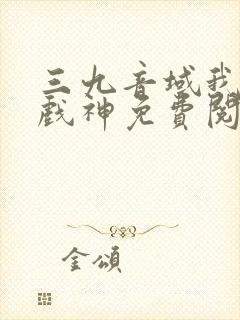 三九音域我
戲神免費閱
金頌